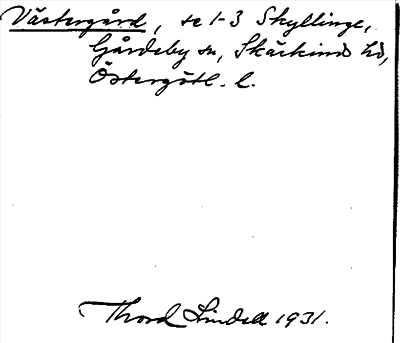 Västergård, se 1-3 Skyllinge,
Gårdeby sn, Skärkinds hd,
Östergötl. l.
Thord Lindell 1931.